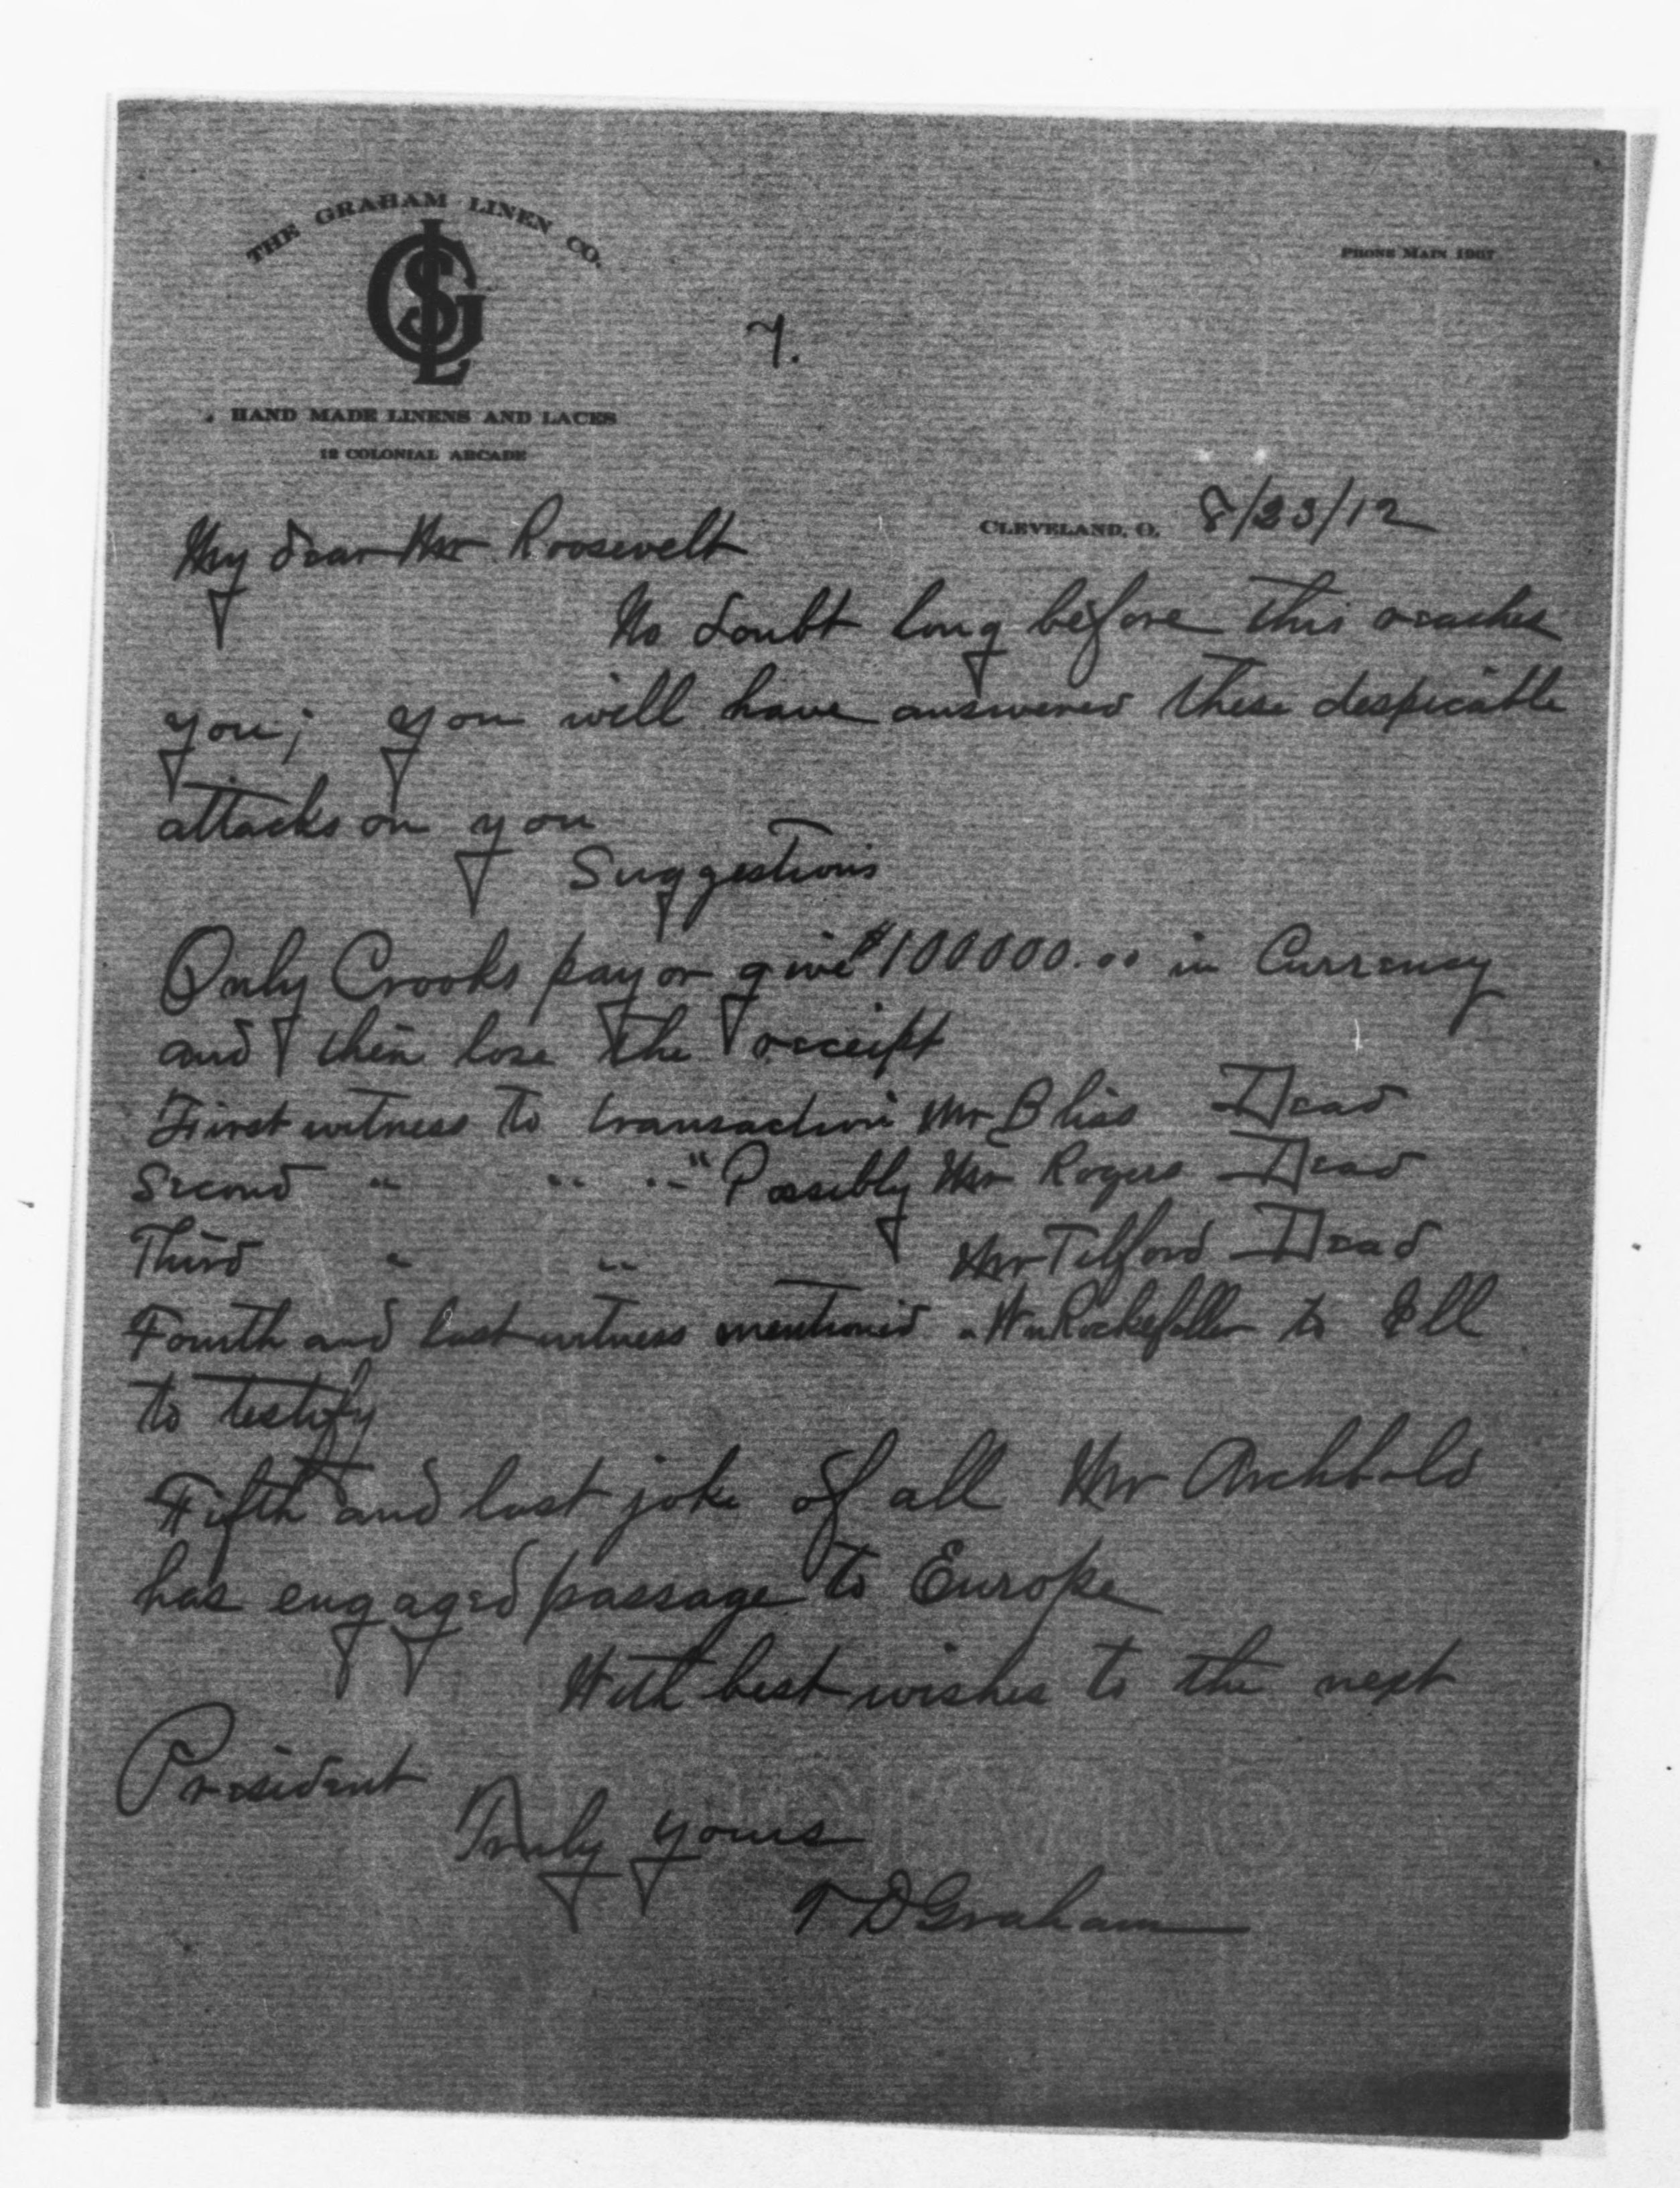 THE GRAHAM LINEN CO.
PHONE MAIN 1967
7.
HAND MADE LINENS AND LACES
12 COLONIAL ARCADE
CLEVELAND, O. 8/23/12
My dear Mr Roosevelt
No doubt long before this reaches
you; you will have answered these despicable
attacks on you
Suggestions
Only Crooks pay or give $100000.00 in Currency
and then lose the receipt
First witness to transaction Mr Bliss Dead
Second " " " " Possibly Mr Rogers Dead
Third " " Mr Tilford Dead
Fourth and last witness mentioned Wm Rockefeller to Ill
to testify
Fifth and last joke of all Mr Archbold
has engaged passage to Europe
With best wishes to the next
President
Truly yours
T D Graham